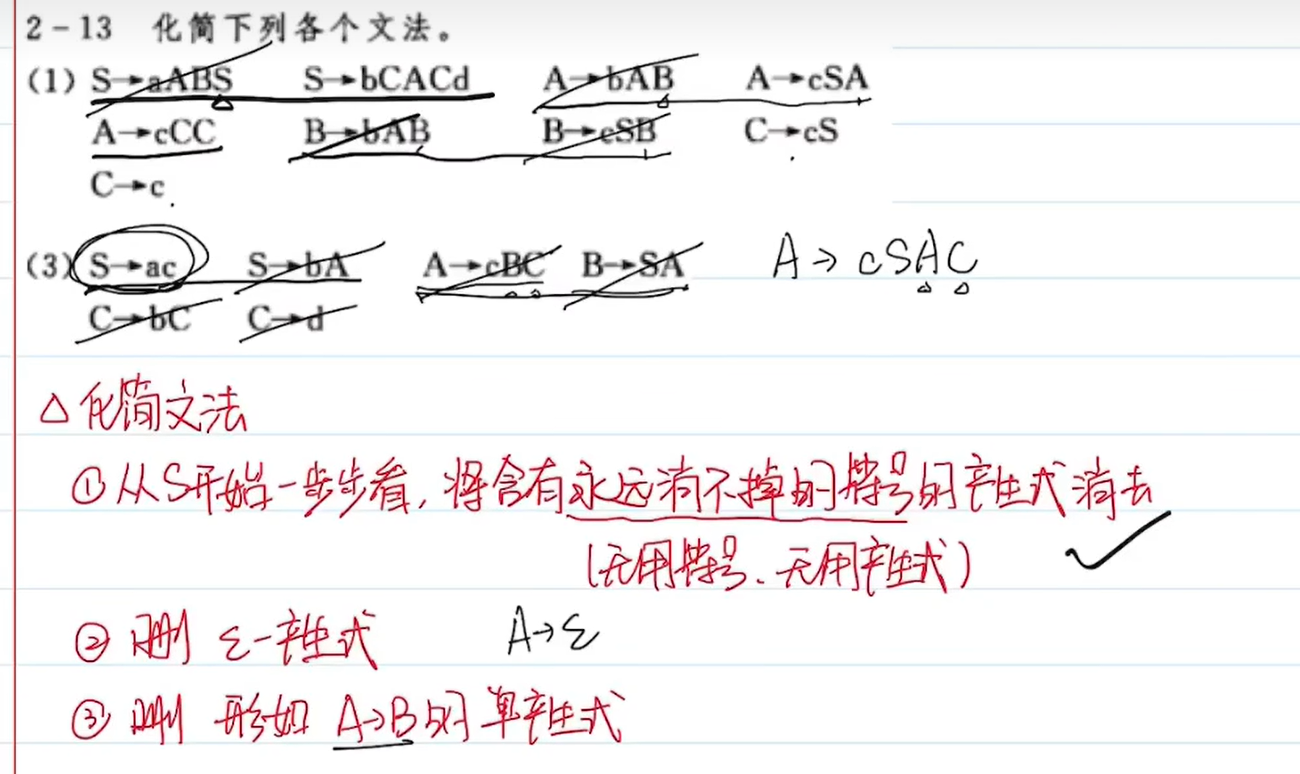 2-13 化简下列各个文法。
(1) S→aABS S→bCACd A→bAB A→cSA
A→cCC B→bAB B→cSB C→cS
C→c
(3) S→ac S→bA A→cBC B→SA A→cSAC
C→bC C→d
△化简文法
①从S开始一步步看,将含有永远消不掉的符号的产生式消去
(无用符号、无用产生式)
② 删 ε-产生式 A→ε
③ 删 形如 A→B的单产生式